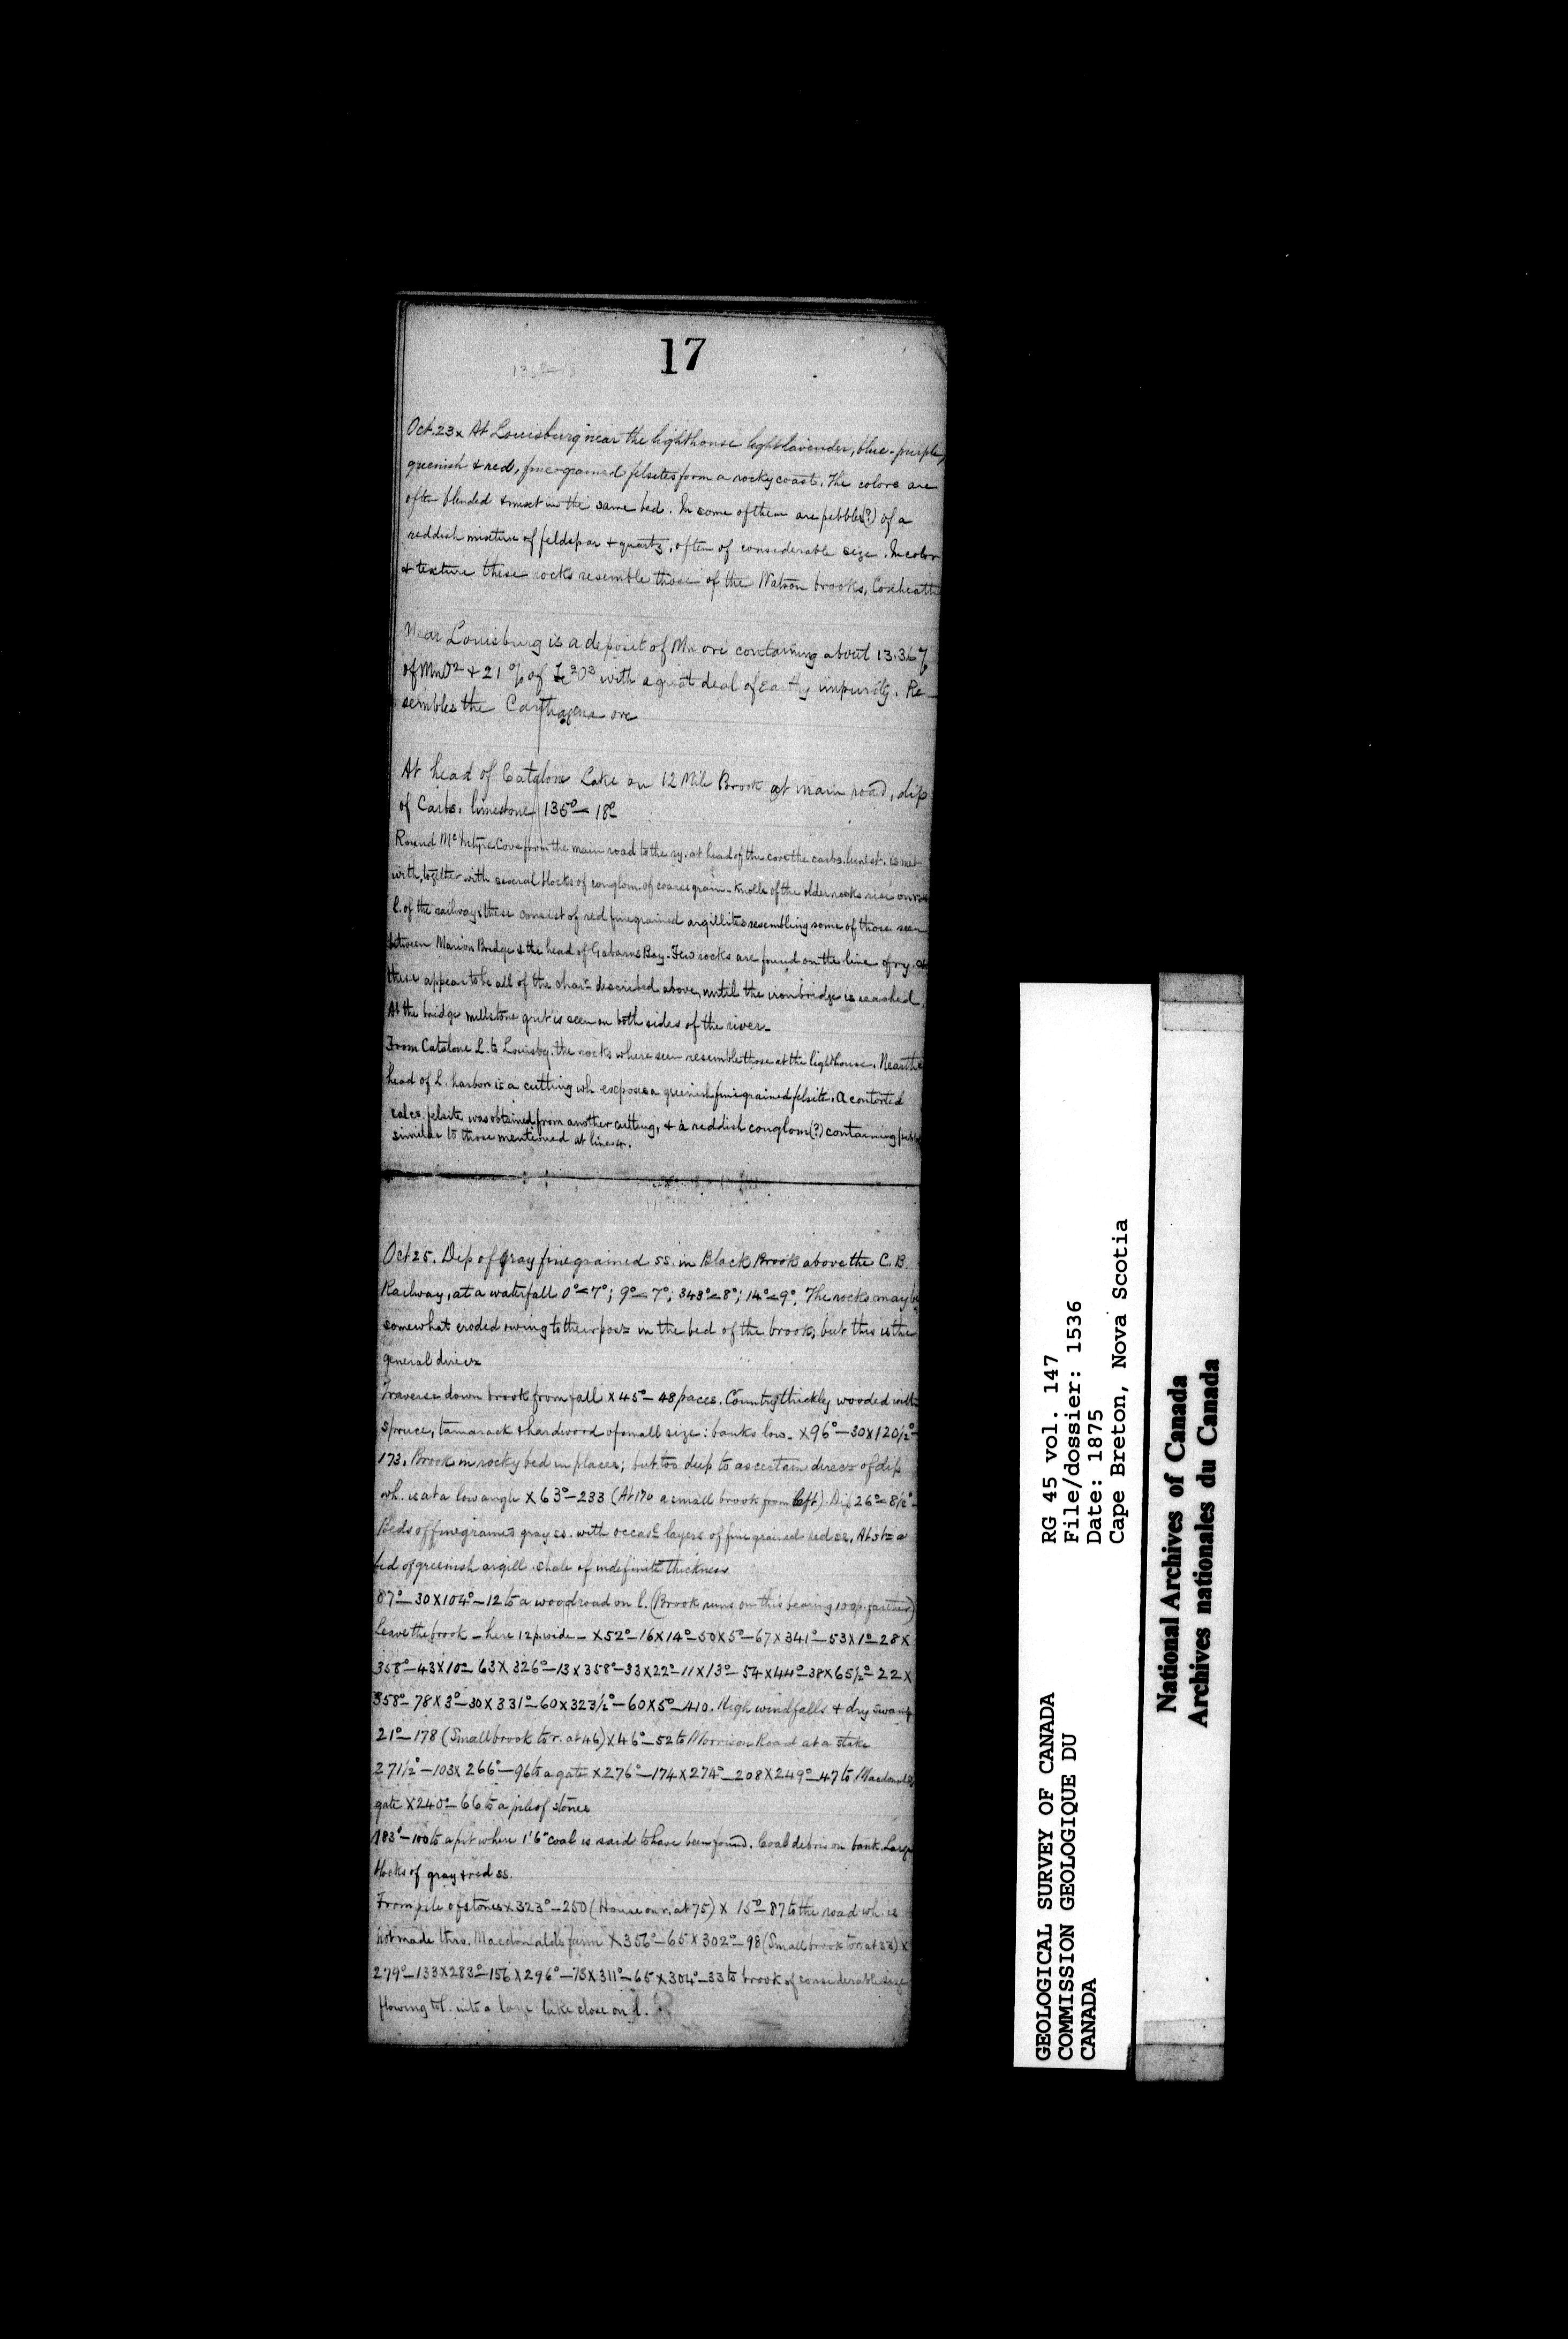 17
Oct. 23 x At Louisburg near the lighthouse light lavender, blue-purple,
greenish & red, fine-grained felsites form a rocky coast. The colors are
often blended & mixt in the same bed. In some of them are pebbles(?) of a
reddish mixture of feldspar & quartz, often of considerable size. In color
& texture these rocks resemble those of the Watson brooks, Coxheath
Near Louisburg is a deposit of Mn ore containing about 13.36%
of MnO2 & 21 % of Fe2O3 with a great deal of Earthy impurity. Re-
sembles the Carthagena ore
At head of Catalone Lake on 12 Mile Brook at main road, dip
of Carb. limestone 135°-18°
Round McIntyre Cove from the main road to the ry. at head of the cove the carb. limest. is met
with, together with several blocks of conglom. of coarse grain. Knolls of the older rocks rise on
l. of the railway & these consist of red finegrained argillites resembling some of those seen
between Marion Bridge & the head of Gabarus Bay. Few rocks are found on the line of ry. &
these appear to be all of the charr. described above, until the iron bridge is reached.
At the bridge millstone grit is seen on both sides of the river.
From Catalone L. to Louisbg. the rocks where seen resemble those at the lighthouse. Near the
head of L. harbor is a cutting wh exposes a greenish fine grained felsite. A contorted
calcs. felsite was obtained from another cutting, & a reddish conglom(?) containing
similar to those mentioned at line
Oct 25. Dip of gray fine grained ss. in Black Brook above the C. B.
Railway, at a waterfall 0°<7°; 9°<7°; 343°<8°; 14°<9°. The rocks may be
somewhat eroded owing to their posn in the bed of the brook, but this is the
general direcn
Traverse down brook from fall x 45°-48 paces. Country thickly wooded with
spruce, tamarack & hardwood of small size: banks low. x 96°-30 x 120½°-
173. Brook in rocky bed in places; but too deep to ascertain direcn of dip
wh. is at a low angle x 63°-233 (At 170 a small brook from left). Dip 26°<8½°
Beds of finegrained gray ss. with occasl layers of fine grained red ss. At stn a
bed of greenish argill. shale of indefinite thickness
87°-30 x 104°-12 to a wood road on l. (Brook runs on this bearing 100 p. farther)
Leave the brook - here 12 p. wide - x 52°-16 x 14°-50 x 5°-67 x 341°-53 x 1°-28 x
358°-43 x 10°-63 x 326°-13 x 358°-33 x 22°-11 x 13°-54 x 44°-38 x 65½°-22 x
358°-78 x 3°-30 x 331°-60 x 323½°-60 x 5°-410. High windfalls & dry swamp
21°-178 (Small brook to r. at 46) x 46°-52 to Morrison Road at a stake
271½°-103 x 266°-96 to a gate x 276°-174 x 274°-208 x 249°-47 to Macdonald's
gate x 240°-66 to a pile of stones
183°-100 to a pit where 1'6" coal is said to have been found. Coal debris on bank. Large
blocks of gray & red ss.
From pile of stones x 323°-250 (House on r. at 75) x 15°-87 to the road wh. is
not made thro. Macdonald's farm x 356°-65 x 302°-98 (Small brook to r. at 33) x
279°-133 x 283°-156 x 296°-75 x 311°-65 x 304°-33 to brook of considerable size
flowing to l. into a large lake close on l.
GEOLOGICAL SURVEY OF CANADA
COMMISSION GEOLOGIQUE DU
CANADA
RG 45 vol. 147
File/dossier: 1536
Date: 1875
Cape Breton, Nova Scotia
National Archives of Canada
Archives nationales du Canada